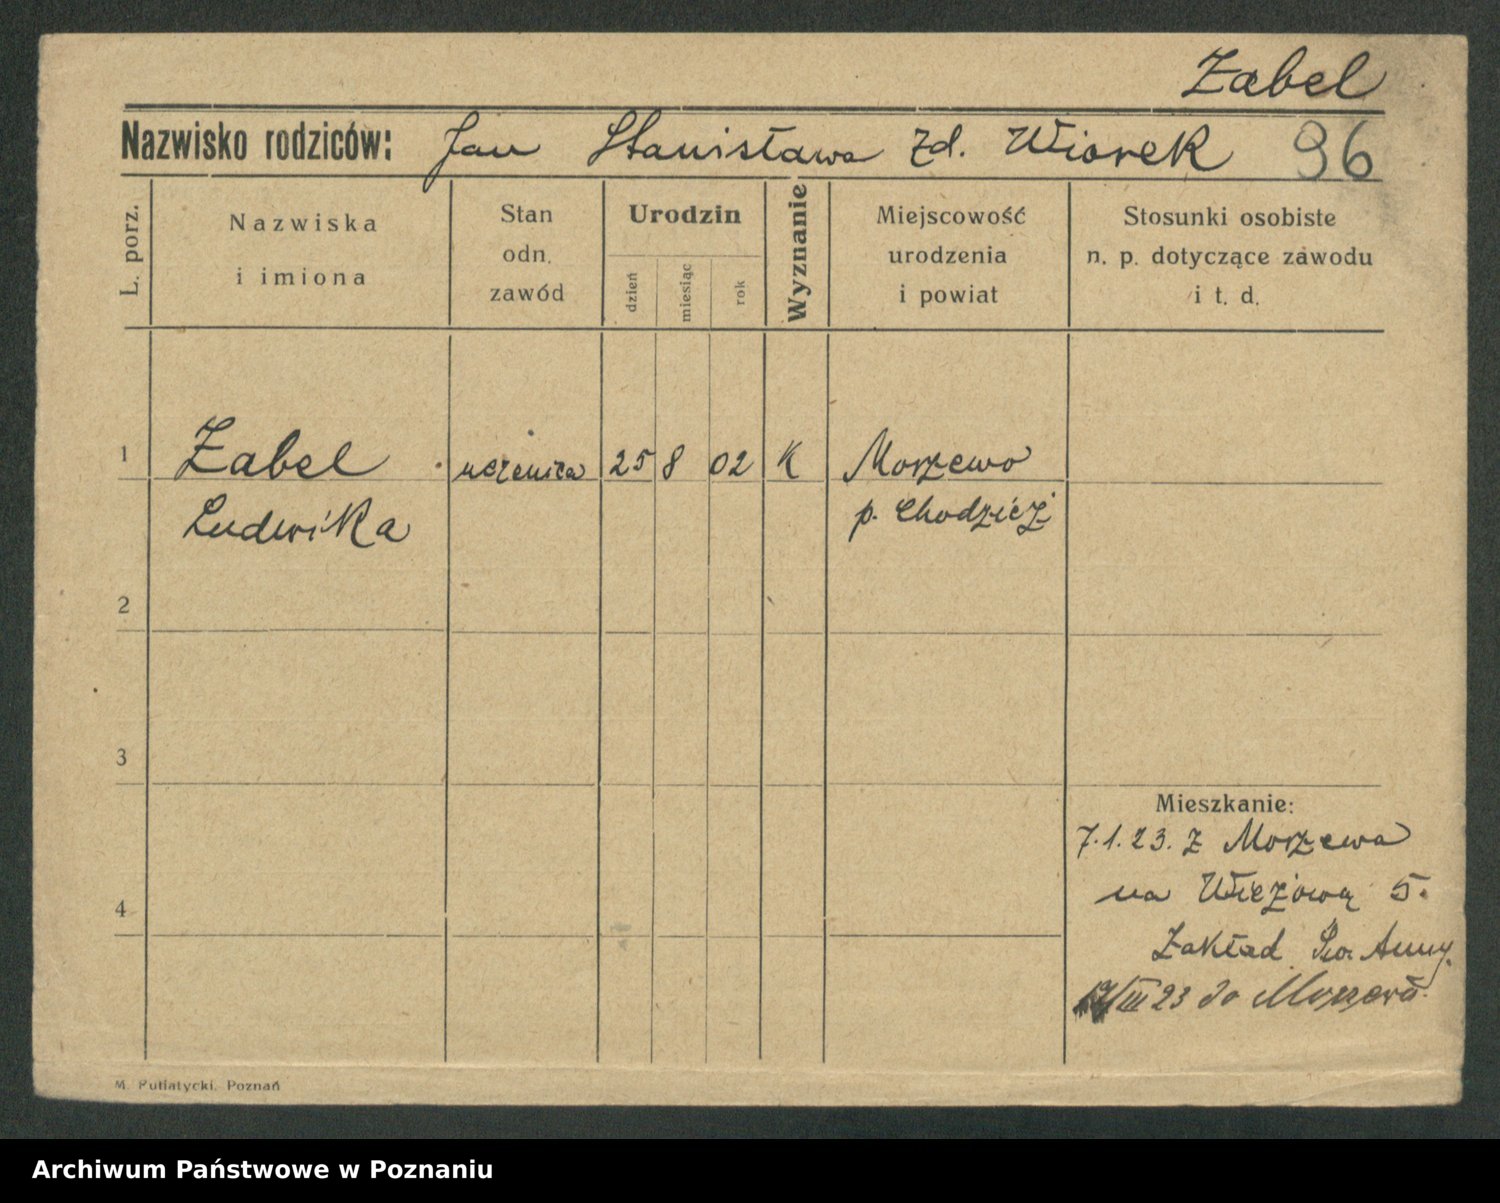 Zabel
Nazwisko rodziców: Jan Stanisława zd. Wiorek 96
L. porz.
Nazwiska i imiona
Stan odn. zawód
Urodzin
dzień miesiąc rok
Wyznanie
Miejscowość urodzenia i powiat
Stosunki osobiste n. p. dotyczące zawodu i t. d.
1 Zabel uczenica 25 8 02 K Morzewo
Ludwika p. Chodzież
2
3
Mieszkanie:
7.1.23. z Morzewa
na Wieżową 5.
4
Zakład Św. Anny.
/III 23 do Morzewa.
M. Putiatycki. Poznań
Archiwum Państwowe w Poznaniu